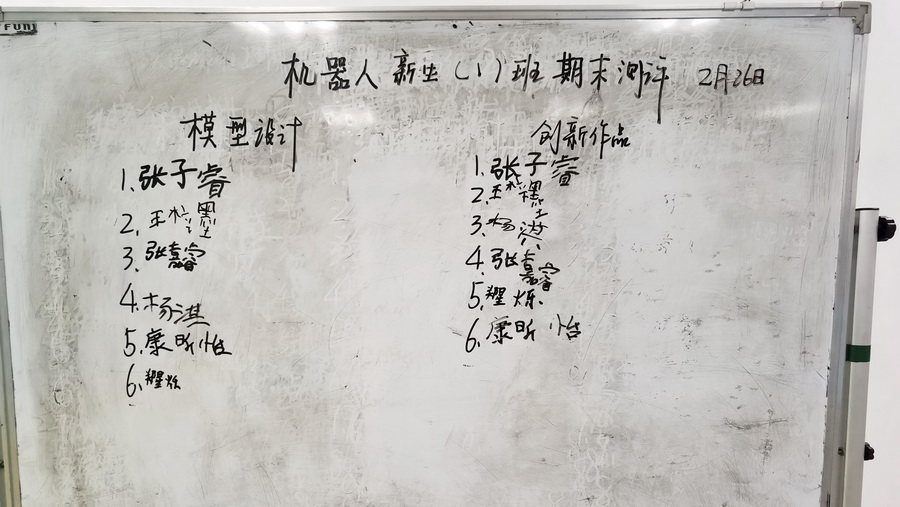 FUN
机器人新生(1)班期末测评 2月26日
模型设计
1.张子睿
2.王
3.张嘉睿
4.杨淇
5.康昕怡
6.
创新作品
1.张子睿
2.王
3.杨淇
4.张嘉睿
5.烁.
6.康昕怡